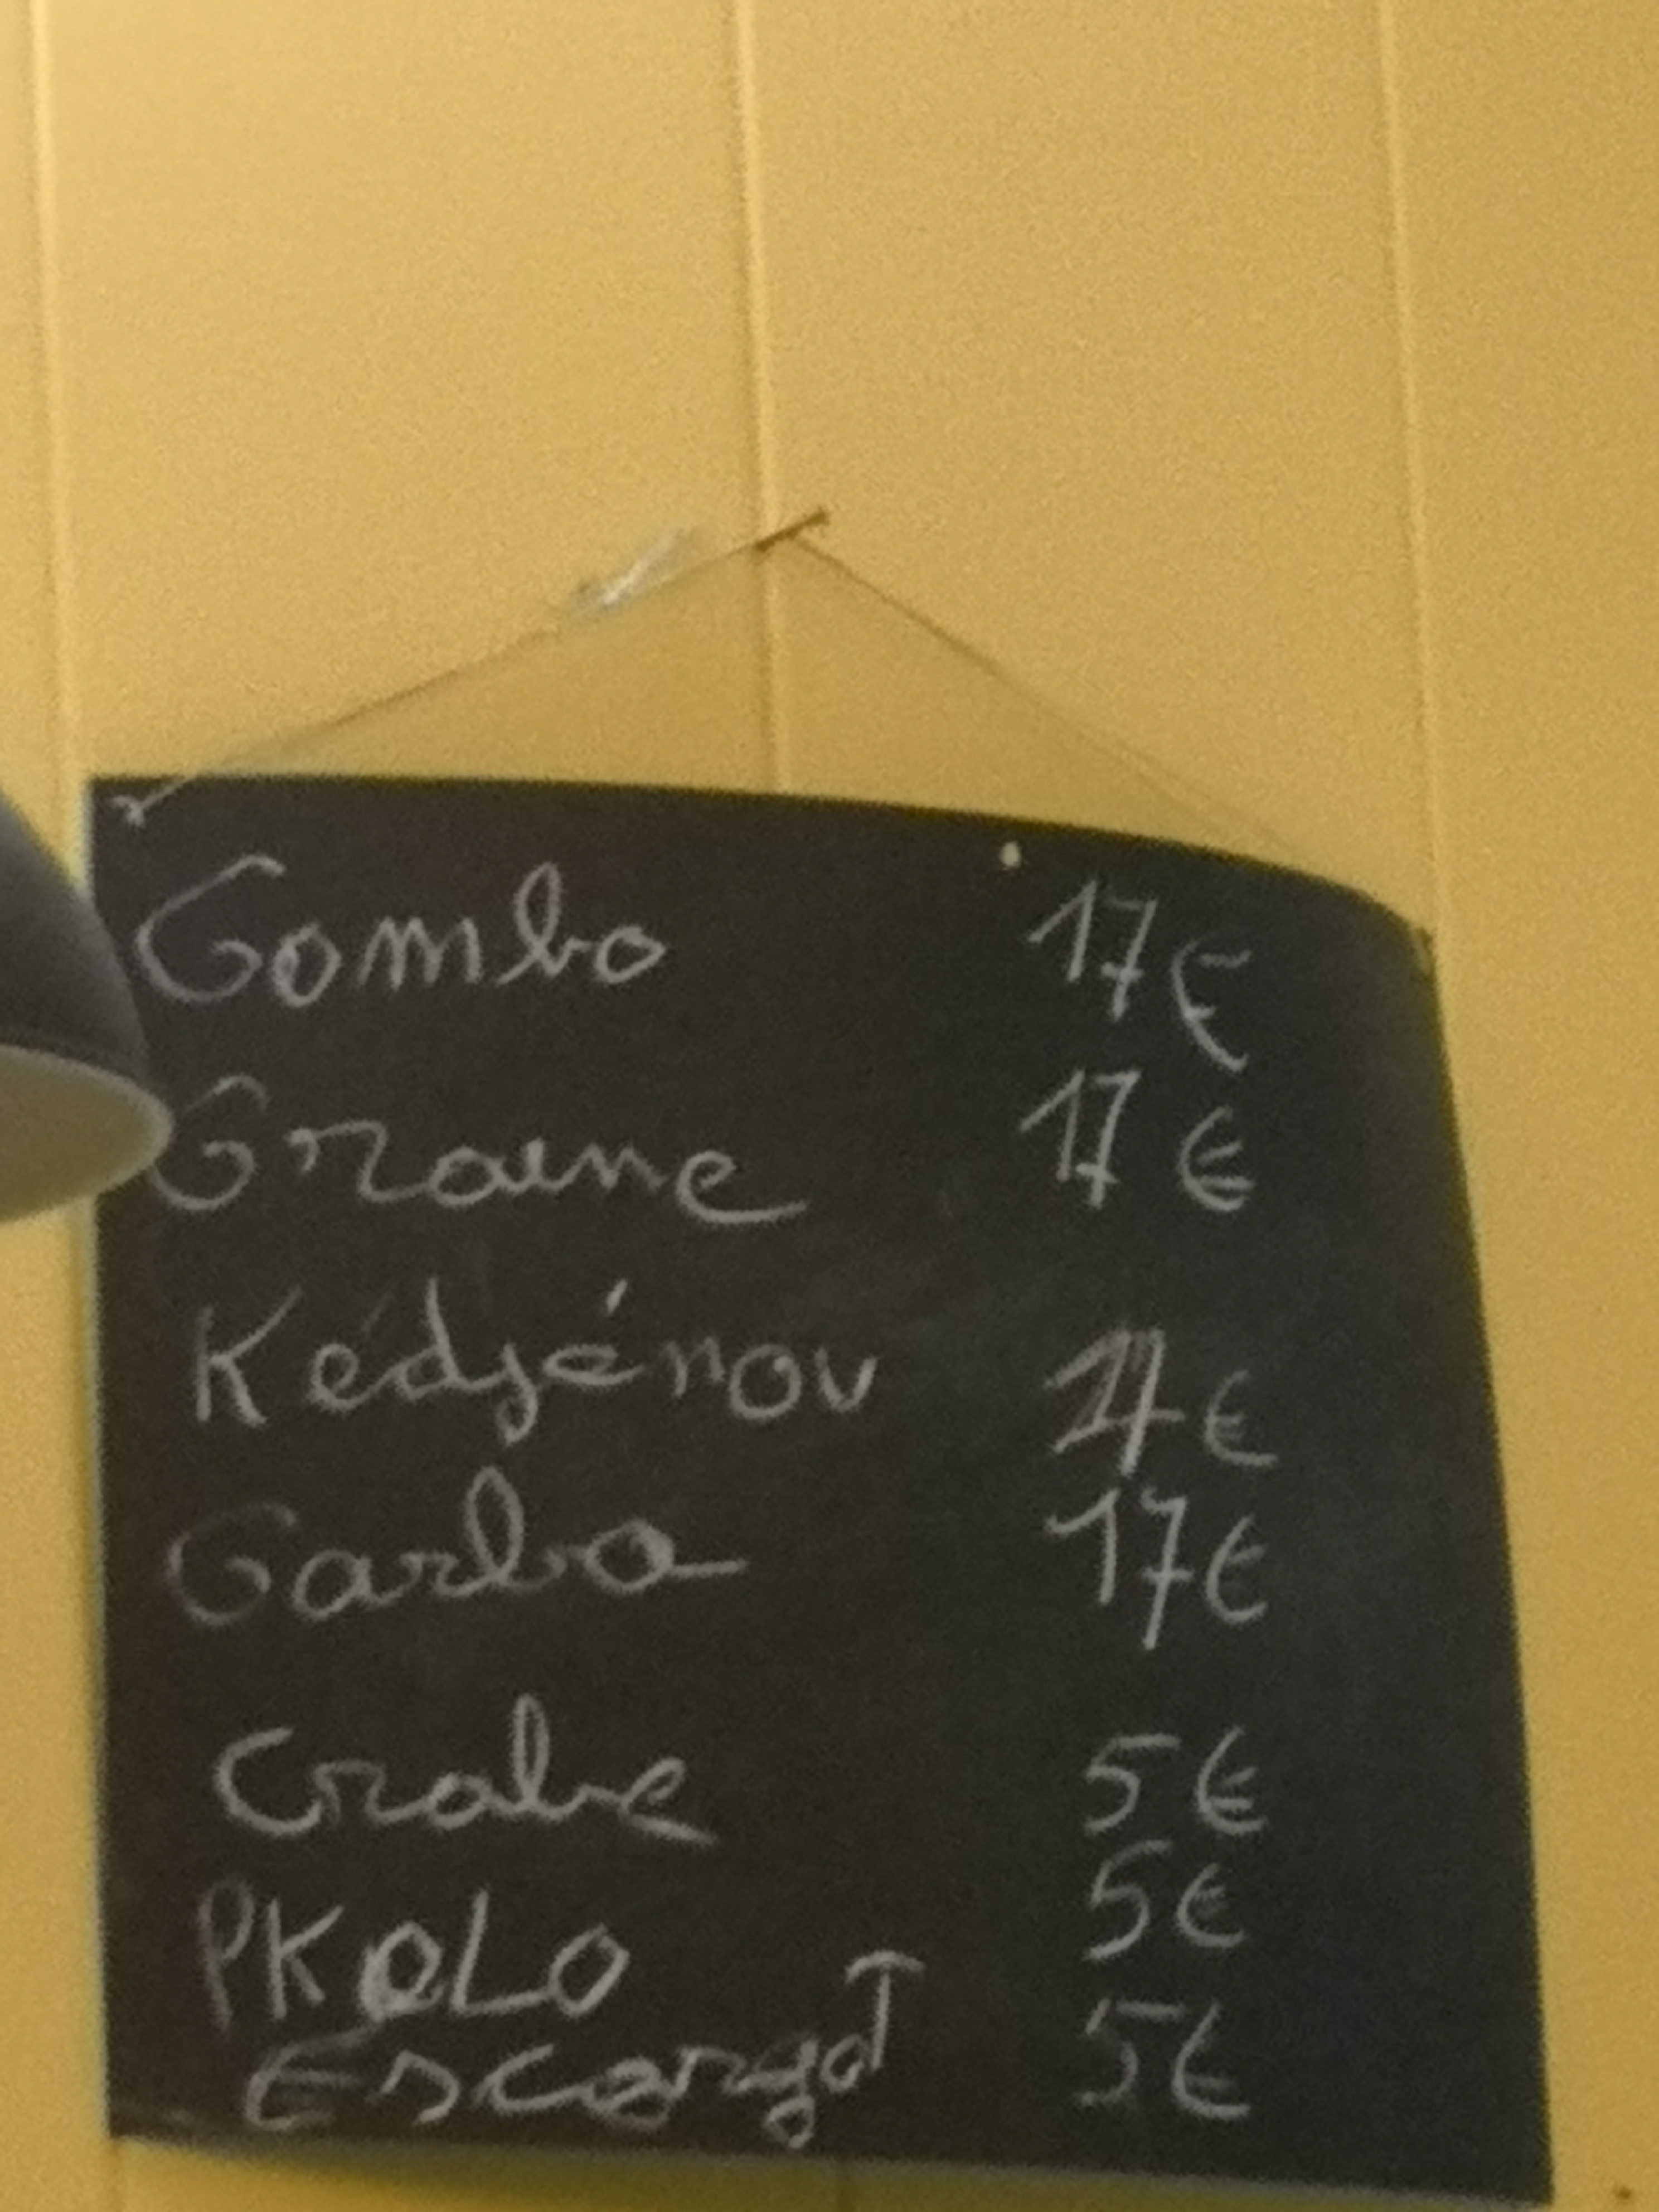 Gombo 17€
Graine 17€
Kédjénou 17€
Garba 17€
Crabe 5€
PKOLO 5€
EscargoT 5€